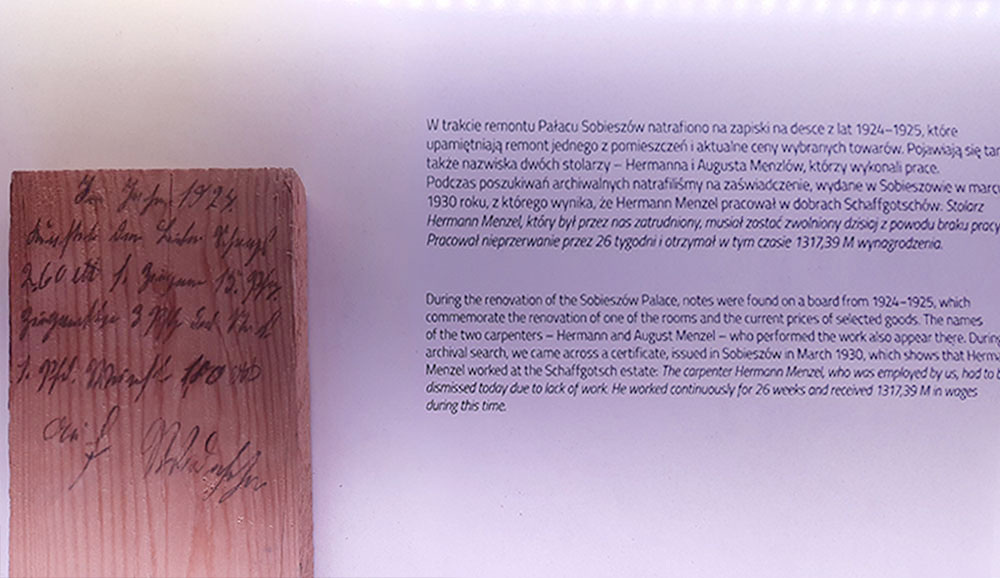 Im Jahre 1924.
kostete der Liter Schnaps
2,60 M 1. Zigarre 15. Pfg.
Zigarette 3 Pfg das Stück
1. Pfd. Wurst 100 M
Auf Wiedersehn
W trakcie remontu Pałacu Sobieszów natrafiono na zapiski na desce z lat 1924–1925, które
upamiętniają remont jednego z pomieszczeń i aktualne ceny wybranych towarów. Pojawiają się tam
także nazwiska dwóch stolarzy – Hermanna i Augusta Menzlów, którzy wykonali prace.
Podczas poszukiwań archiwalnych natrafiliśmy na zaświadczenie, wydane w Sobieszowie w marcu
1930 roku, z którego wynika, że Hermann Menzel pracował w dobrach Schaffgotschów: Stolarz
Hermann Menzel, który był przez nas zatrudniony, musiał zostać zwolniony dzisiaj z powodu braku pracy
Pracował nieprzerwanie przez 26 tygodni i otrzymał w tym czasie 1317,39 M wynagrodzenia.
During the renovation of the Sobieszów Palace, notes were found on a board from 1924–1925, which
commemorate the renovation of one of the rooms and the current prices of selected goods. The names
of the two carpenters – Hermann and August Menzel – who performed the work also appear there. During
archival search, we came across a certificate, issued in Sobieszów in March 1930, which shows that Herma
Menzel worked at the Schaffgotsch estate: The carpenter Hermann Menzel, who was employed by us, had to b
dismissed today due to lack of work. He worked continuously for 26 weeks and received 1317,39 M in wages
during this time.